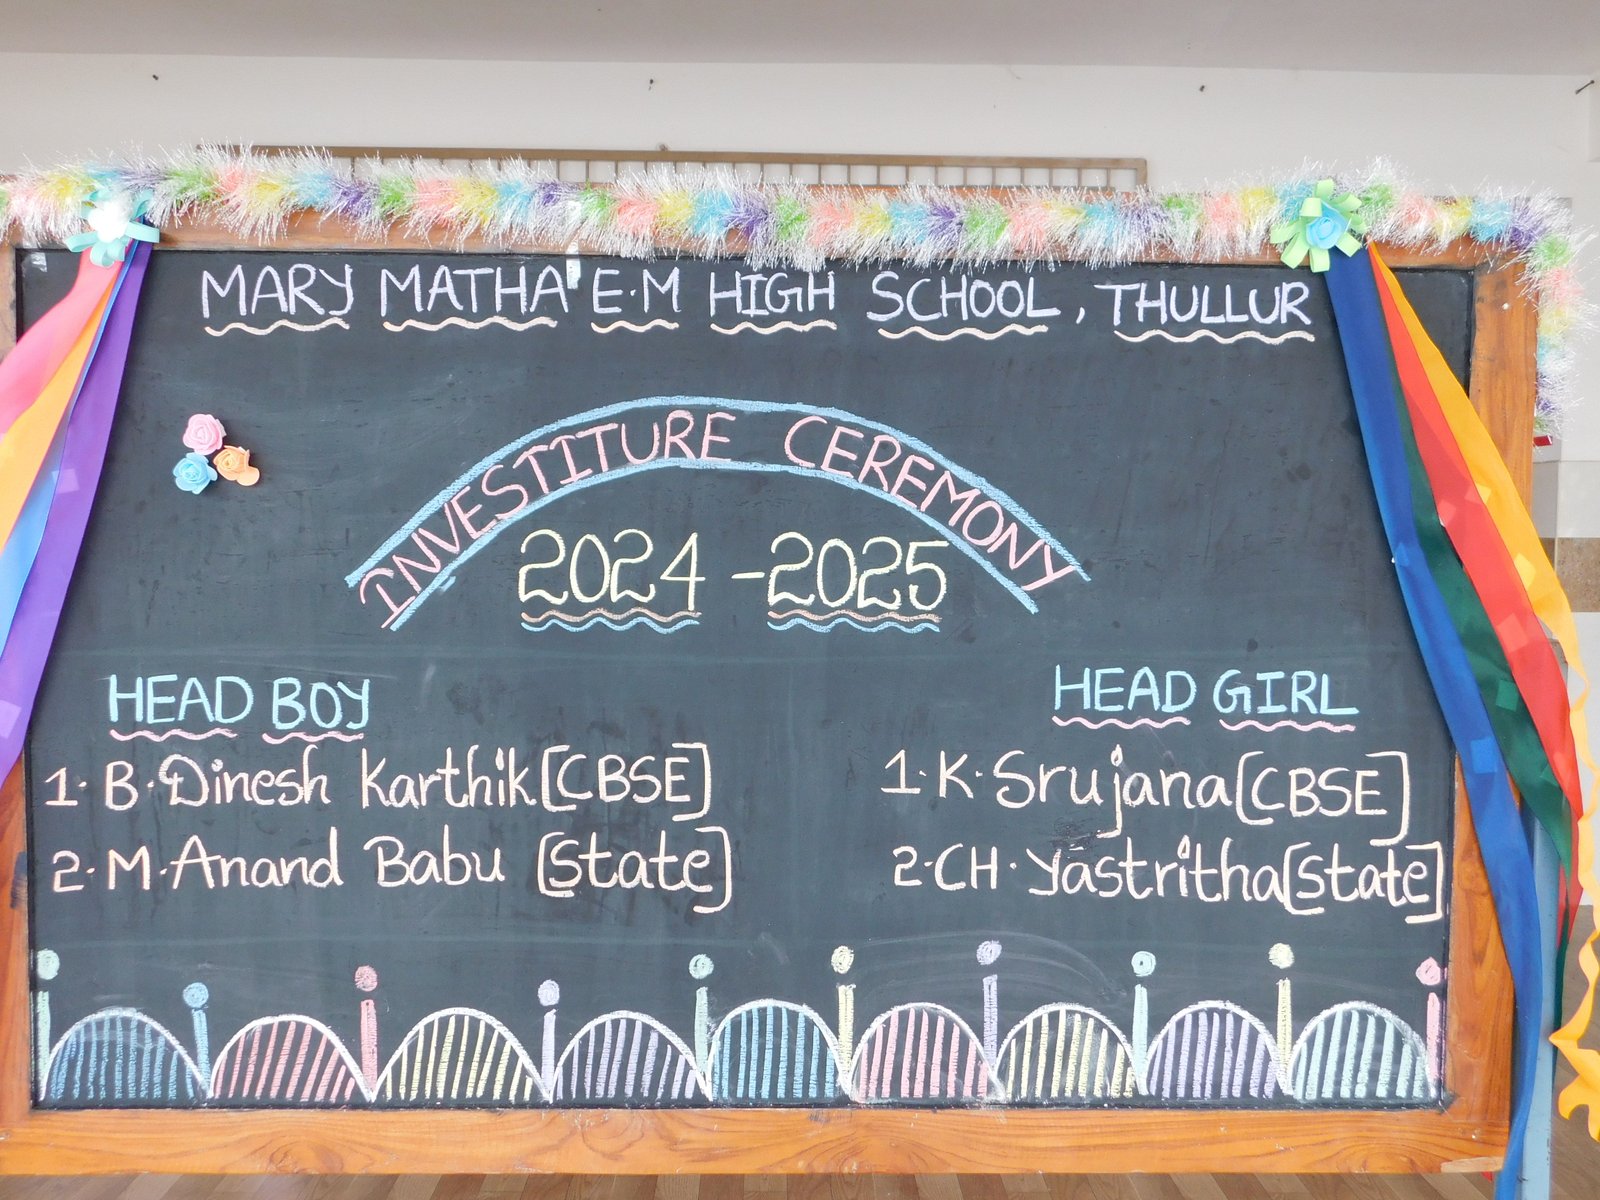 MARY MATHA E.M HIGH SCHOOL, THULLUR
INVESTITURE CEREMONY
2024 - 2025
HEAD BOY
1. B. Dinesh Karthik [CBSE]
2. M. Anand Babu [State]
HEAD GIRL
1. K. Srujana [CBSE]
2. CH. Yastritha [State]